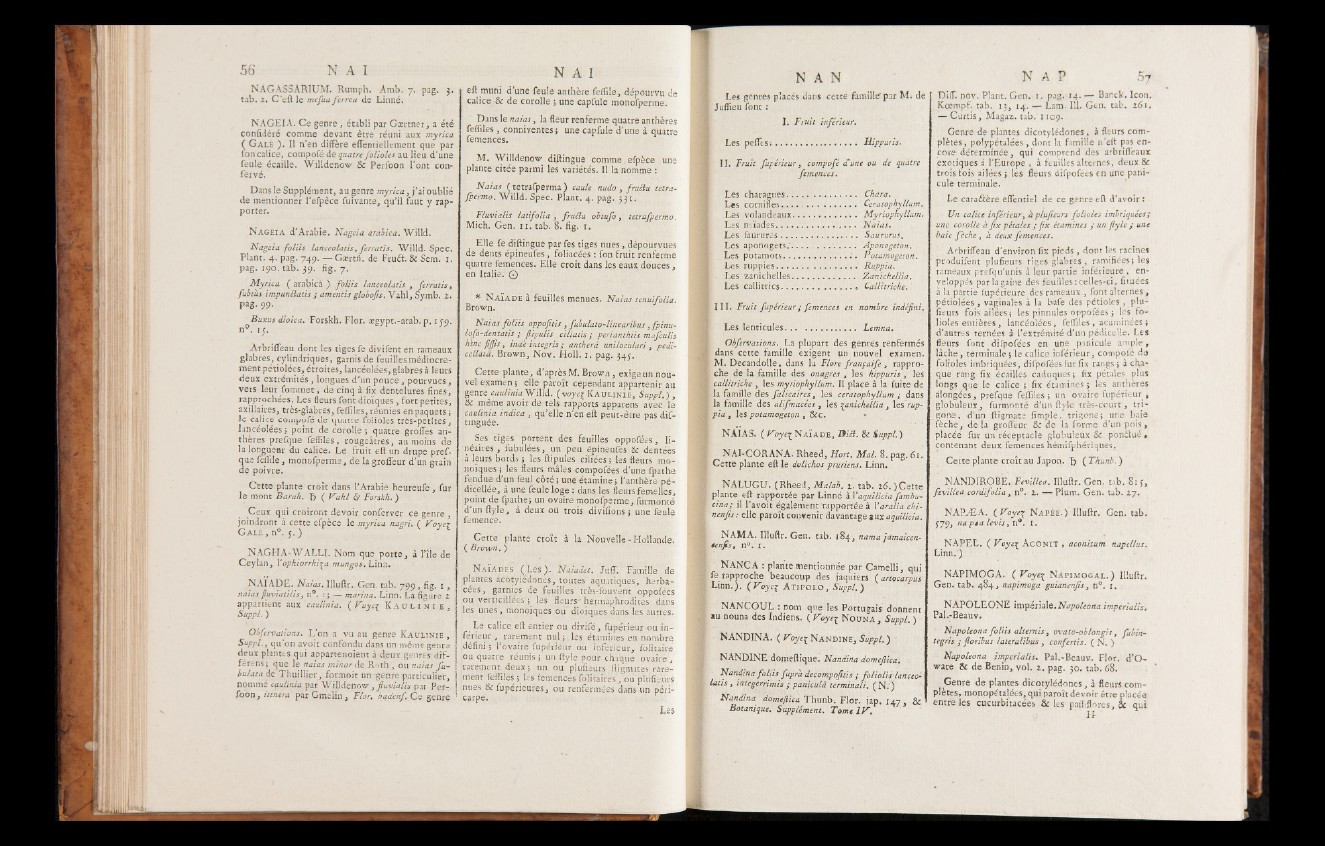 56 N A I
NAGASSARIUM. Rumph. Amb. 7. pag. 3.
tab. 2. C'eſt le meſua ferrea de Linné.
NAGEIA. Ce genre, établi par Gærtner, a été
conſidéré comme devant être réuni aux myrica
( GALÉ ). Il n'en diffère eſſentiellement que par
ſon calice, compoſé de quatre folioles au lieu d'une
ſeule écaille. Willdenow & Perſoon l'ont con-
ſervé.
Dans le Supplément, au genre myrica, j'ai oublié
de mentionner l'eſpèce ſuivante, qu'il faut y rap-
porter.
NAGEIA d'Arabie. Nageia arabica. Willd.
Nageia foliis lanceolatis, ſerratis. Willd. Spec.
Plant. 4. pag. 749. — Gærtn. de Fruct. & Sem. 1.
pag. 190. tab. 39. fig. 7.
Myrica ( arabica ) foliis lanceolatis, ſerratis,
ſubtùs impunctatis ; amentis globoſis. Vahl, Symb. 2.
pag. 99.
Buxus dioica. Forskh. Flor. ægypt.-arab. p. 159.
n°. 15.
Arbriſſeau dont les tiges ſe diviſent en rameaux
glabres, cylindriques, garnis de feuilles médiocre-
ment pétiolées, étroites, lancéolées, glabres à leurs
deux extrémités, longues d'un pouce, pourvues,
vers leur ſommet, de cinq à ſix dentelures fines,
rapprochées. Les fleurs ſont dioïques, fort petites,
axillaires, très-glabres, ſeſſiles, réunies en paquets ;
le calice compoſé de quatre folioles très-petites,
lancéolées ; point de corolle ; quatre groſſes an-
thères preſque ſeſſiles, rougeâtres, au moins de
la longueur du calice. Le fruit eſt un drupe preſ-
que ſeſſile, monoſperme, de la groſſeur d'un grain
de poivre.
Cette plante croît dans l'Arabie heureuſe, ſur
le mont Barah. ♄ ( Vahl & Forskh. )
Ceux qui croiront devoir conſerver ce genre,
joindront à cette eſpèce le myrica nagri. ( Voyez
GALÉ, n°. 5. )
NAGHA-WALLI. Nom que porte, à l'île de
Ceylan, l'ophiorrhiza mungos. Linn.
NAÏADE. Naias. Illuſtr. Gen. tab. 799, fig. 1,
naias fluviatilis, n°. 1 ; — marina. Linn. La figure 2
appartient aux caulinia. ( Voyez KAULINIE,
Suppl. )
Obſervations. L'on a vu au genre KAULINIE,
Suppl., qu'on avoit confondu dans un même genre
deux plantes qui appartenoient à deux genres diſ-
férens ; que le naias minor de Roth, ou naias ſu-
bulata de Thuillier, formoit un genre particulier,
nommé caulinia par Willdenow, fluvialis par Per-
ſoon, ittnera par Gmelin, Flor. badenſ. Ce genre
N A I
eſt muni d'une ſeule anthère ſeſſile, dépourvu de
calice & de corolle ; une capſule monoſperme.
Dans le naias, la fleur renferme quatre anthères
ſeſſiles, conniventes ; une capſule d'une à quatre
ſemences.
M. Willdenow diſtingue comme eſpèce une
plante citée parmi les variétés. Il la nomme :
Naias ( tetraſperma ) caule nudo, fructu tetra-
ſpermo. Willd. Spec. Plant. 4. pag. 331.
Fluvialis latifolia, fructu obtuſo, tetraſpermo.
Mich. Gen. 11. tab. 8. fig. 1.
Elle ſe diſtingue par ſes tiges nues, dépourvues
de dents épineuſes, foliacées : ſon fruit renferme
quatre ſemences. Elle croît dans les eaux douces,
en Italie. ☉
* NAÏADE à feuilles menues. Naias tenuifolia.
Brown.
Naias foliis oppoſitis, ſubulato-linearibus, ſpinu-
loſo-dentatis ; ſtipulis ciliatis ; perianthiis maſculis
hinc fiſſis, indè integris ; antherâ uniloculari, pedi-
cellatâ. Brown, Nov. Holl. 1. pag. 345.
Cette plante, d'après M. Brown, exige un nou-
vel examen ; elle paroît cependant appartenir au
genre caulinia Willd. ( voyez KAULINIE, Suppl. ),
& même avoir de tels rapports apparens avec le
caulinia indica, qu'elle n'en eſt peut-être pas diſ-
tinguée.
Ses tiges portent des feuilles oppoſées, li-
néaires, ſubulées, un peu épineuſes & dentées
à leurs bords ; les ſtipules ciliées ; les fleurs mo-
noïques ; les fleurs mâles compoſées d'une ſpathe
fendue d'un ſeul côté ; une étamine ; l'anthère pé-
dicellée, à une ſeule loge : dans les fleurs femelles,
point de ſpathe ; un ovaire monoſperme, ſurmonté
d'un ſtyle, à deux ou trois diviſions ; une ſeule
ſemence.
Cette plante croît à la Nouvelle-Hollande.
( Brown. )
NAÏADES ( Les ). Naiades. Juſſ. Famille de
plantes acotylédones, toutes aquatiques, herba-
cées, garnies de feuilles très-ſouvent oppoſées
ou verticillées ; les fleurs hermaphrodites dans
les unes, monoïques ou dioïques dans les autres.
Le calice eſt entier ou diviſé, ſupérieur ou in-
férieur, rarement nul ; les étamines en nombre
défini ; l'ovaire ſupérieur ou inférieur, ſolitaire
ou quatre réunis ; un ſtyle pour chaque ovaire,
rarement deux ; un ou pluſieurs ſtigmates rare-
ment ſeſſiles ; les ſemences ſolitaires, ou pluſieurs
nues & ſupérieures, ou renfermées dans un péri-
carpe.
Les
N A N
Les genres placés dans cette famille par M. de
Juſſieu ſont :
I. Fruit inférieur.
Les peſſes................. Hippuris.
II. Fruit ſupérieur, compoſé d'une ou de quatre
ſemences.
Les charagnes.............. Chara.
Les cornifles............... Ceratophyllum.
Les volandeaux............. Myriophyllum.
Les naïades................. Naias.
Les ſaurures................ Saururus.
Les aponogets.............. Aponogeton.
Les potamots............... Potamogeton.
Les ruppies................. Ruppia.
Les zanichelles............. Zanichellia.
Les callitrics................ Callitriche.
III. Fruit ſupérieur ; ſemences en nombre indéfini.
Les lenticules... ............ Lemna.
Obſervations. La plupart des genres renfermés
dans cette famille exigent un nouvel examen.
M. Decandolle, dans la Flore françaiſe, rappro-
che de la famille des onagres, les hippuris, les
callitriche, les myriophyllum. Il place à la ſuite de
la famille des ſalicaires, les ceratophyllum ; dans
la famille des aliſmacées, les zanichellia, les rup-
pia, les potamogeton, &c.
NAÏAS. ( Voyez NAÏADE, Dict. & Suppl. )
NAI-CORANA. Rheed, Hort. Mal. 8. pag. 61.
Cette plante eſt le dolichos pruriens. Linn.
NALUGU. ( Rheed, Malab. 2. tab. 26. ) Cette
plante eſt rapportée par Linné à l'aquilicia ſambu-
cina ; il l'avoit également rapportée à l'aralia chi-
nenſis : elle paroît convenir davantage aux aquilicia.
NAMA. Illuſtr. Gen. tab. 184, nama jamaicen-
ſenſis, n°. 1.
NANCA : plante mentionnée par Camelli, qui
ſe rapproche beaucoup des jaquiers ( artocarpus
Linn. ). ( Voyez ATIPOLO, Suppl. )
NANCOUL : nom que les Portugais donnent
au nouna des Indiens. ( Voyez NOUNA, Suppl. )
NANDINA. ( Voyez NANDINE, Suppl. )
NANDINE domeſtique. Nandina domeſtica.
Nandina foliis ſuprà decompoſitis ; foliolis lanceo-
latis, integerrimis ; paniculâ terminali. ( N. )
Nandina domeſtica Thunb. Flor. jap. 147, &
Botanique. Supplément. Tome IV.
N A P 57
Diſſ. nov. Plant. Gen. 1. pag. 14. — Banck. Icon.
Kœmpf. tab. 13, 14. — Lam. Ill. Gen. tab. 261.
— Curtis, Magaz. tab. 1109.
Genre de plantes dicotylédones, à fleurs com-
plètes, polypétalées, dont la famille n'eſt pas en-
core déterminée, qui comprend des arbriſſeaux
exotiques à l'Europe, à feuilles alternes, deux &
trois fois ailées ; les fleurs diſpoſées en une pani-
cule terminale.
Le caractère eſſentiel de ce genre eſt d'avoir :
Un calice inférieur, à pluſieurs folioles imbriquées ;
une corolle à ſix pétales ; ſix étamines ; un ſtyle ; une
baie ſèche, à deux ſemences.
Arbriſſeau d'environ ſix pieds, dont les racines
produiſent pluſieurs tiges glabres, ramifiées ; les
rameaux preſqu'unis à leur partie inférieure, en-
veloppés par la gaîne des feuilles : celles-ci, ſituées
à la partie ſupérieure des rameaux, ſont alternes,
pétiolées, vaginales à la baſe des pétioles, plu-
ſieurs fois ailées ; les pinnules oppoſées ; les fo-
lioles entières, lancéolées, ſeſſiles, acuminées ;
d'autres ternées à l'extrémité d'un pédicelle. Les
fleurs ſont diſpoſées en une panicule ample,
lâche, terminale ; le calice inférieur, compoſé de
folioles imbriquées, diſpoſées ſur ſix rangs ; à cha-
que rang ſix écailles caduques ; ſix pétales plus
longs que le calice ; ſix étamines ; les anthères
alongées, preſque ſeſſiles ; un ovaire ſupérieur,
globuleux, ſurmonté d'un ſtyle très-court, tri-
gone, d'un ſtigmate ſimple, trigone ; une baie
ſèche, de la groſſeur & de la forme d'un pois,
placée ſur un réceptacle globuleux & ponctué,
contenant deux ſemences hémiſphériques.
Cette plante croît au Japon. ♄ ( Thunb. )
NANDIROBE. Fevillea. Illuſtr. Gen. tab. 815,
fevillea cordifolia, n°. 2. — Plum. Gen. tab. 27.
NAPÆA. ( Voyez NAPÉE. ) Illuſtr. Gen. tab.
579, napæa levis, n°. 1.
NAPEL. ( Voyez ACONIT, aconitum napellus.
Linn. )
NAPIMOGA. ( Voyez NAPIMOGAL. ) Illuſtr.
Gen. tab. 484, napimoga guianenſis, n°. 1.
NAPOLEONE impériale. Napoleona imperialis.
Pal.-Beauv.
Napoleona foliis alternis, ovato-oblongis, ſubin-
tegris ; floribus lateralibus, confertis. ( N. )
Napoleona imperialis. Pal.-Beauv. Flor. d'O-
ware & de Benin, vol. 2. pag. 30. tab. 68.
Genre de plantes dicotylédones, à fleurs com-
plètes, monopétalées, qui paroît devoir être placée
entre les cucurbitacées & les paſſiflores, & qui
H